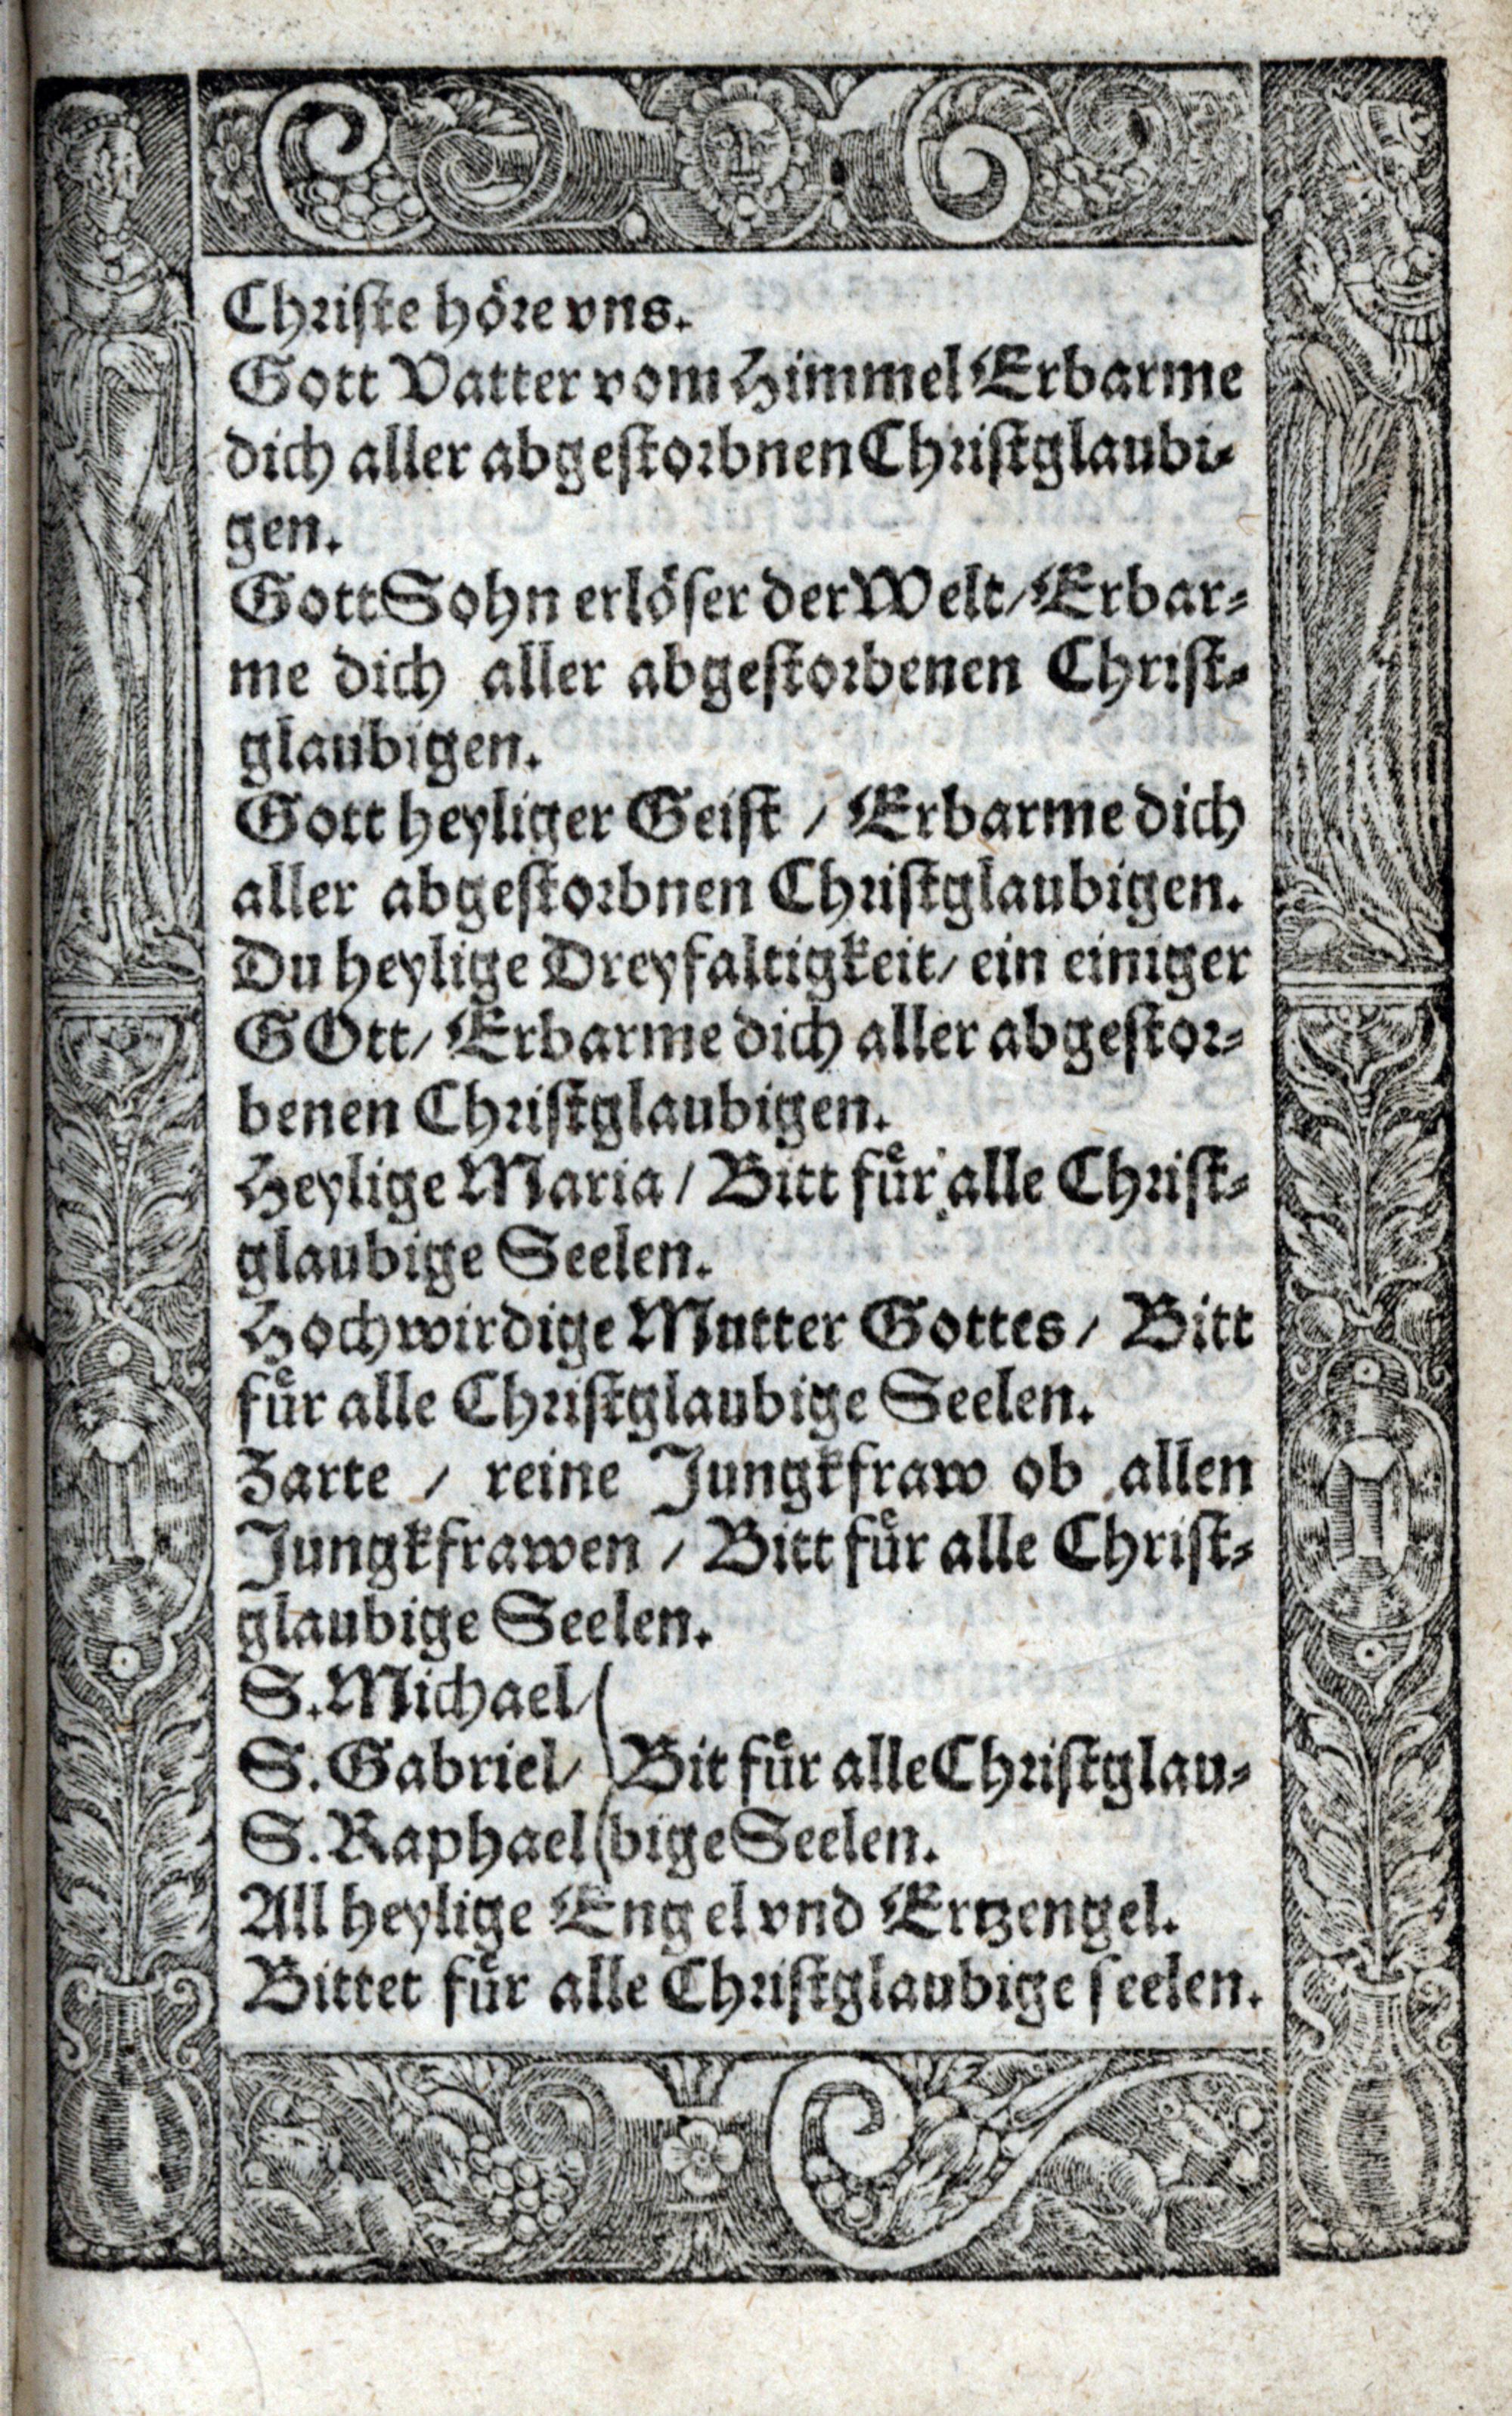 Christe höre vns.
Gott Vatter vom Himmel Erbarme
dich aller abgestorbnen Christglaubi-
gen.
Gott Sohn erlöser der Welt/ Erbar-
me dich aller abgestorbenen Christ-
glaubigen.
Gott heyliger Geist / Erbarme dich
aller abgestorbnen Christglaubigen.
Du heylige Dreyfaltigkeit/ ein einiger
GOtt/ Erbarme dich aller abgestor-
benen Christglaubigen.
Heylige Maria / Bitt für alle Christ-
glaubige Seelen.
Hochwirdige Mutter Gottes / Bitt
für alle Christglaubige Seelen.
Zarte / reine Jungkfraw ob allen
Jungkfrawen / Bitt für alle Christ-
glaubige Seelen.
S. Michael/
S. Gabriel/ Bit für alle Christglau-
S. Raphael bige Seelen.
All heylige Engel vnd Ertzengel.
Bittet für alle Christglaubige seelen.